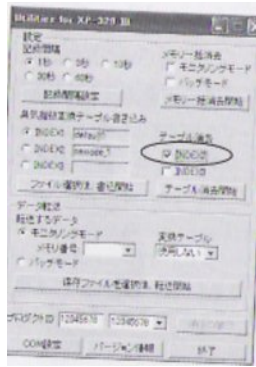 Utilities for XP-329 III
設定
記録間隔
1秒 3秒 10秒
30秒 60秒
記録間隔設定
メモリー括消去
モニタリングモード
バッチモード
メモリー括消去開始
臭気指数変換テーブル書き込み
INDEX1 default
INDEX2
INDEX3
ファイル選択後、書込開始
テーブル消去
INDEX2
INDEX3
テーブル消去開始
データ転送
転送するデータ
モニタリングモード
メモリ番号
バッチモード
変換テーブル
使用しない
保存ファイル名選択後、転送開始
プロダクトID 12345678 12345678
COM設定 バージョン情報 終了